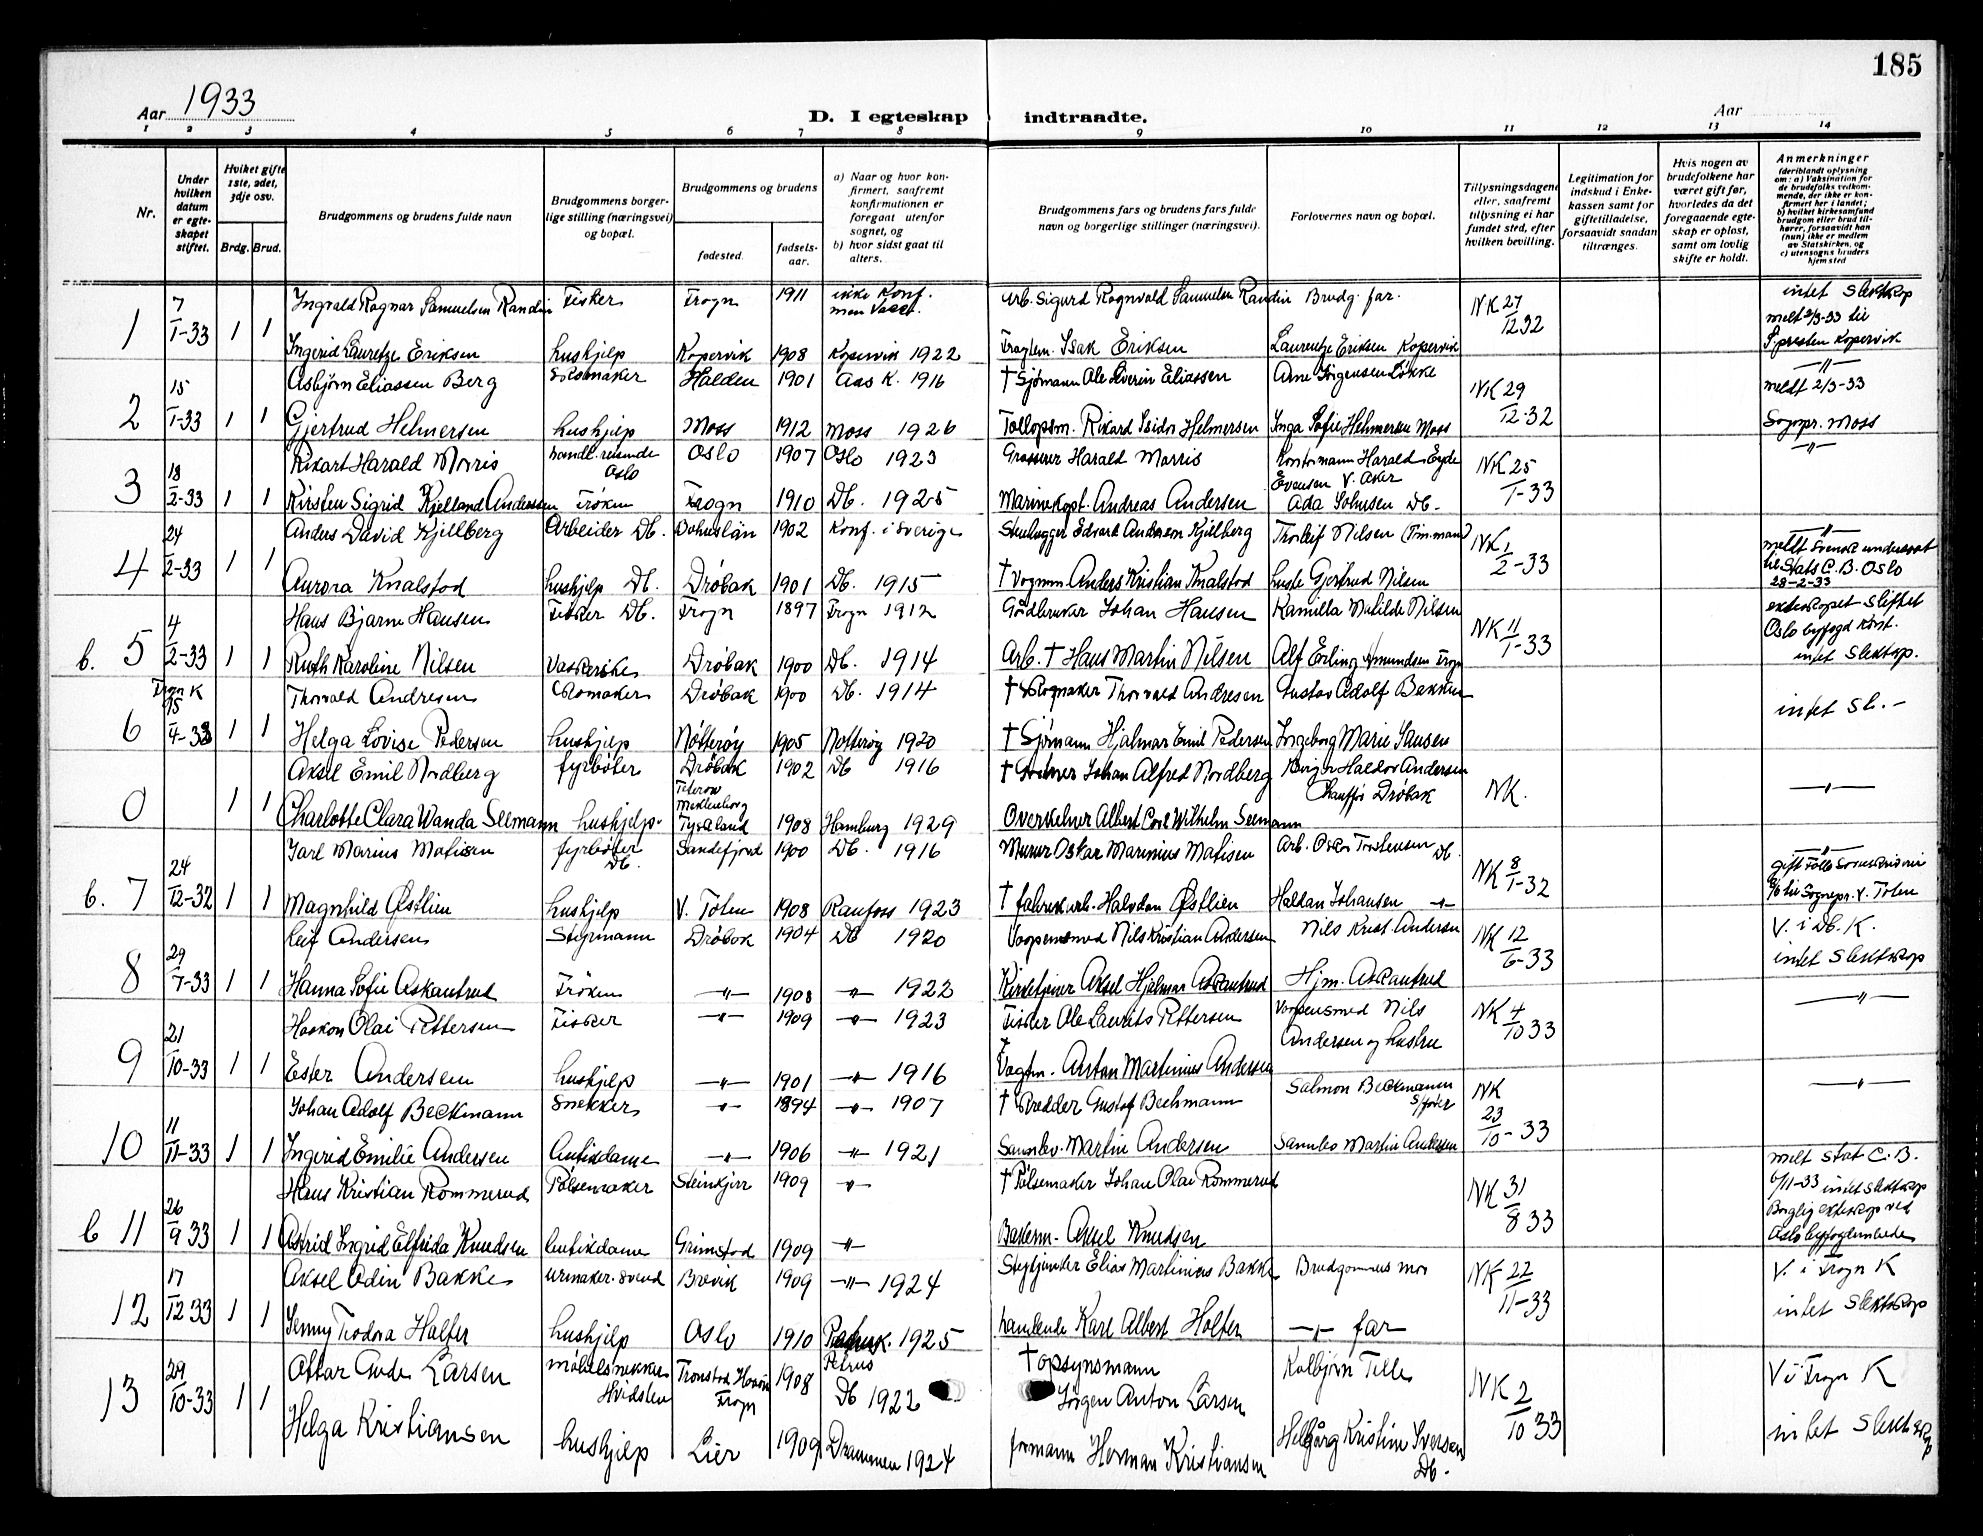 185
Aar 1933
D. I egteskap indtraadte.
Aar
1 2 3 4 5 6 7 8 9 10 11 12 13 14
Nr.
Under hvilken datum er egteskapet stiftet.
Hvilket gifte 1ste, 2det, 3dje osv.
Brdg. Brud.
Brudgommens og brudens fulde navn
Brudgommens borgerlige stilling (næringsvei) og bopæl.
Brudgommens og brudens
fødested.
fødselsaar.
a) Naar og hvor konfirmert, saafremt konfirmationen er foregaat utenfor sognet, og
b) hvor sidst gaat til alters.
Brudgommens fars og brudens fars fulde navn og borgerlige stillinger (næringsvei).
Forlovernes navn og bopæl.
Tillysningsdagene eller, saafremt tillysning ei har fundet sted, efter hvilken bevilling.
Legitimation for indskud i Enkekassen samt for giftetilladelse, forsaavidt saadan tiltrænges.
Hvis nogen av brudefolkene har været gift før, hvorledes da det foregaaende egteskap er opløst, samt om lovlig skifte er holdt.
Anmerkninger (deriblandt oplysning om: a) Vaksination for de brudefolks vedkommende, der ikke er konfirmert her i landet; b) hvilket kirkesamfund brudgom eller brud tilhører, forsaavidt han (hun) ikke er medlem av Statskirken, og c) utensogns bruders hjemsted
1 7/1-33 1 1 Ingvald Ragnar Samuelsen Randin Fisker Frogn 1911 ikke konf. men Arb. Sigurd Rognvald Samuelsen Randin Brudg. far. NK 27/12 32 intet Slektskap
Ingerid Lauretze Eriksen hushjelp Kopervik 1908 Kopervik 1922 Isak Eriksen Laurentze Eriksen Kopervik meldt 2/3-33 til S.presten Kopervik
2 15/1-33 1 1 Asbjørn Eliassen Berg Halden 1901 Aas K. 1916 † Sjømann Ole Severin Eliassen Arne Jørgensen Løkke NK 29/12-32 meldt 2/3-33
Gjertrud Helmersen hushjelp Moss 1912 Moss 1926 Tollopsm. Rikard Isidor Helmersen Inga Sofie Helmersen Moss Sognepr. Moss
3 18/2-33 1 1 Rikart Harald Morris handl. reisende Oslo Oslo 1907 Oslo 1923 Grosserer Harald Morris Harald Eyde Evensen V. Aker NK 25/1-33 -"-
Kirsten Sigrid Kjelland Andersen Frøken Frogn 1910 Db. 1925 Marinekapt. Andreas Andersen Ada Db.
4 24/2-33 1 1 Anders David Kjellberg Arbeider Db. Bohuslän 1902 Konf. i Sverige Stenhugger Edvard Andreasen Kjellberg Thorleif Nilsen NK 1/2-33 meldt Svensk undersaat
Aurora Knalstad hushjelp Db. Drøbak 1901 Db. 1915 † Vognm. Anders Kristian Knalstad Gjertrud Nilsen til Stats C.B. Oslo 28-2-33
b. 5 4/2-33 1 1 Hans Bjarne Hansen Fisker Db. Frogn 1897 Frogn 1912 Gårdbruker Johan Hansen Kamilla Matilde Nilsen NK 11/1-33 ekteskapet stiftet Oslo byfogd kont.
Ruth Karoline Nilsen Drøbak 1900 Db. 1914 Arb. † Hans Martin Nilsen Alf Erling Amundsen Frogn intet Slektsp.
Frogn K
6 15/4-33 1 1 Thorvald Andresen Skomaker Drøbak 1900 Db. 1914 † Skomaker Thorvald Andresen Gustav Adolf Bakken intet Sl.-
Helga Lovise Pedersen hushjelp Nøtterøy 1905 Nøtterøy 1920 † Sjømann Hjalmar Emil Pedersen Ingeborg Marie Jansen
0 1 1 Aksel Emil Nordberg fyrbøter Drøbak 1902 Db 1916 † Johan Alfred Nordberg Birger Haldor Andersen Chauffør Drøbak NK. -"-
Charlotte Clara Wanda Seemann hushjelp. Teterow Mecklenborg Tyskland 1908 Hamburg 1929 Overkelner Albert Carl Wilhelm Seemann
b. 7 24/12-32 1 1 Jarl Marius Matisen fyrbøter Db. Sandefjord 1900 Db. 1916 Murer Oskar Marinius Matisen Arb. Oskar Torstensen Db. NK 8/1-32
Magnhild Østlien hushjelp V. Toten 1908 Raufoss 1923 † fabrikarb. Halvdan Østlien Haldan Johansen -"- til Sognepr. V. Toten
8 29/7-33 1 1 Leif Andersen Styrmann Drøbak 1904 Db 1920 Vaapensmed Nils Kristian Andersen Nils Krist. Andersen NK 12/6-33 V. i Db. K.
Hanna Sofie Askautrud Frøken -"- 1908 -"- 1922 Kirketjener Aksel Hjalmar Askautrud Hjm. Askautrud intet Slektskap
9 21/10-33 1 1 Haakon Olai Pettersen Fisker -"- 1909 -"- 1923 Fisker Ole Laurits Pettersen Vaapensmed Nils Andersen og hustru NK 4/10 33 -"-
Ester Andersen hushjelp -"- 1901 -"- 1916 † Vagtm. Anton Martinius Andersen
10 11/11-33 1 1 Johan Adolf Beckmann Snekker -"- 1894 -"- 1907 † Skredder Gustaf Beckmann Salmon Beckmann NK 23/10-33 -"-
Ingerid Emilie Andersen butikdame -"- 1906 -"- 1921 Martin Andersen Martin Andersen
b 11 26/9 33 1 1 Hans Kristian Rommerud Pølsemaker Steinkjer 1909 -"- † Pølsemaker Johan Olai Rommerud NK 31/8 33 meldt Stat C.B. 6/11-33 intet Slektskap
Astrid Ingrid Elfrida Knudsen butikdame Grimstad 1909 -"- Bakerm. Aksel Knudsen Borglig ekteskap ved Oslo byfogdembede
12 17/12 33 1 1 Aksel Odin Bakke urmaker.svend Brevik 1909 -"- 1924 Elias Martinius Bakke Brudgommens mor NK 22/11-33 V. i Frogn K
Jenny Teodora Holter hushjelp Oslo 1910 Petrus 1925 Karl Albert Holter -"- far intet Slektskap
13 29/10-33 1 1 Ottar Gude Larsen møbelsnekker Hvidsten Frogn 1908 Db 1922 † opsynsmann Jørgen Anton Larsen Kolbjørn Telle NK 2/10 33 V i Frogn K
Helga Kristiansen hushjelp Lier 1909 Drammen 1924 formann Herman Kristiansen Kristine Iversen Db. intet Slektskap